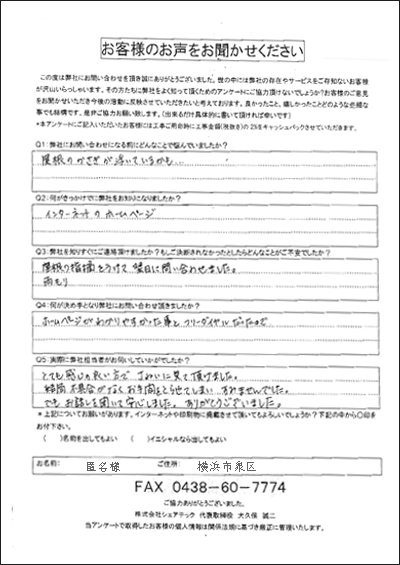 お客様のお声をお聞かせください
この度は弊社にお問い合わせを頂き誠にありがとうございました。世の中には弊社の存在やサービスをご存知ないお客様
が沢山いらっしゃいます。その方たちに弊社をよく知って頂くためのアンケートにご協力頂けないでしょうか?お客様のご意見
をお聞かせいただき今後の活動に反映させていただきたいと考えております。良かったこと、嬉しかったことどのような些細な
事でも結構です。是非ご協力お願い致します。(出来るだけ具体的に書いて頂ければ幸いです)
*本アンケートにご記入いただいたお客様には工事ご用命時に工事金額(税抜き)の2%をキャッシュバックさせていただきます。
Q1:弊社にお問い合わせになる前にどんなことで悩んでいましたか?
屋根のかさぎが浮いているかも...
Q2:何がきっかけでに弊社をお知りになりましたか?
インターネットのホームページ
Q3:弊社を知りすぐにご連絡頂けましたか?もしご決断されなかったとしたらどんなことがご不安でしたか?
屋根の指摘をうけて翌日に問い合わせました。
雨もり
Q4:何が決め手となり弊社にお問い合わせ頂きましたか?
ホームページがわかりやすかった事と、フリーダイヤルだったので
Q5:実際に弊社担当者がお伺いしていかがでしたか?
とても感じの良い方で ていねいに見て頂けました。
結局 不具合がなく お手間をとらせてしまい すみませんでした。
でも お話しを聞いて安心しました。ありがとうございました。
*上記についてお願いがあります。インターネットや印刷物に掲載させて頂いてもよろしいでしょうか?下記の中から〇印を
お付下さい。
( )名前を出してもよい ( )イニシャルなら出してもよい
お名前: 匿名様 ご住所: 横浜市泉区
FAX 0438-60-7774
ご協力ありがとうございました。
株式会社シェアテック 代表取締役 大久保 誠二
当アンケートで取得したお客様の個人情報は関係法規に基づき厳正に管理いたします。